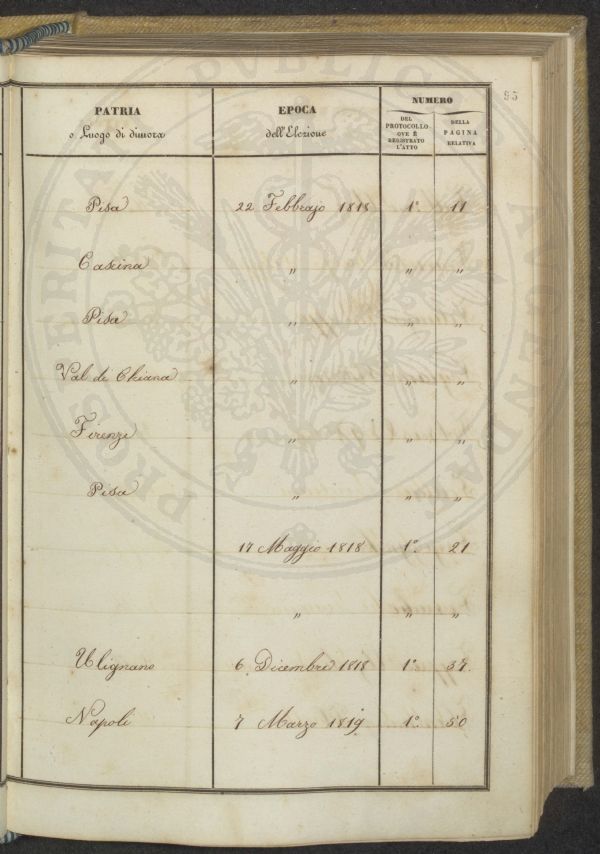 95
PATRIA
o Luogo di dimora
EPOCA
dell'Elezione
NUMERO
DEL
PROTOCOLLO
OVE È
REGISTRATO
L'ATTO
DELLA
PAGINA
RELATIVA
Pisa 22 Febbrajo 1818 1º. 11
Cascina " " "
Pisa " " "
Val di Chiana " " "
Firenze " " "
Pisa " " "
17 Maggio 1818 1º. 21
" " "
Ulignano 6. Dicembre 1818 1º. 37.
Napoli 7 Marzo 1819 1º. 50